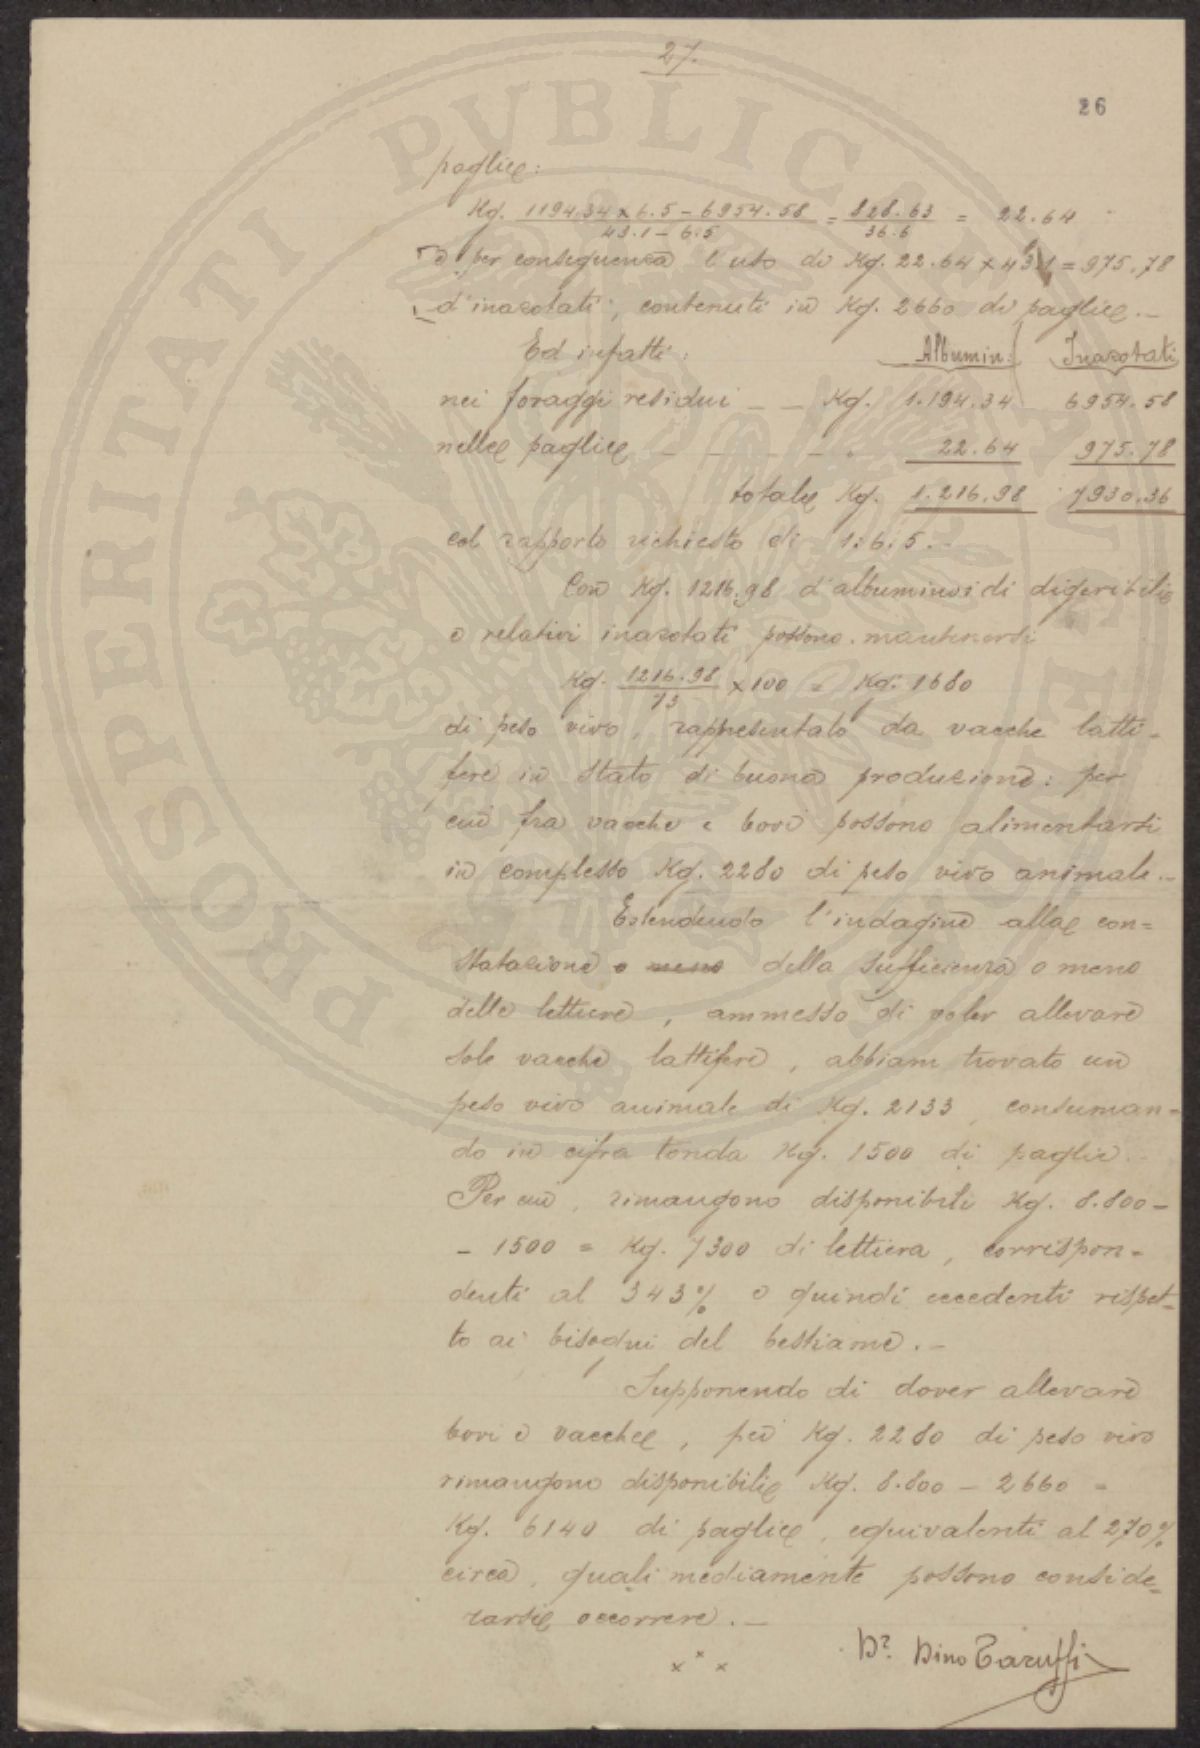 27.
26
paglie:
Kg. 1194.34 x 6.5 - 6954.58 / 43.1 - 6.5 = 828.63 / 36.6 = 22.64
e per conseguenza l'uso di Kg. 22.64 x 43.1 = 975.78
d'inazotati, contenuti in Kg. 2660 di paglie.-
Ed infatti: Albumin: Inazotati
nei foraggi residui _ _ Kg. 1.194.34 6954.58
nelle paglie _ _ _ _ _ . 22.64 975.78
totale Kg. 1.216.98 7930.36
col rapporto richiesto di 1:6.5.-
Con Kg. 1216.98 d'albuminoidi digeribili
e relativi inazotati possono mantenersi
Kg. 1216.98 / 73 x 100 = Kg. 1680
di peso vivo, rappresentato da vacche latti-
fere in stato di buona produzione: per
cui fra vacche e bovi possono alimentarsi
in complesso Kg. 2280 di peso vivo animale.-
Estendendo l'indagine alla con=
statazione o meno della sufficienza o meno
delle lettiere, ammesso di voler allevare
sole vacche lattifere, abbiam trovato un
peso vivo animale di Kg. 2133, consuman=
do in cifra tonda Kg. 1500 di paglie.
Per cui, rimangono disponibili Kg. 8.800-
- 1500 = Kg. 7300 di lettiera, corrispon-
denti al 343% e quindi eccedenti rispet-
to ai bisogni del bestiame.-
Supponendo di dover allevare
bovi e vacche, per Kg. 2280 di peso vivo
rimangono disponibili Kg. 8.800 - 2660 =
Kg. 6140 di paglie, equivalenti al 270%
circa, quali mediamente possono conside=
rarsi occorrere.-
x x x
Dr. Dino Taruffi
PROSPERITATI PUBLICAE